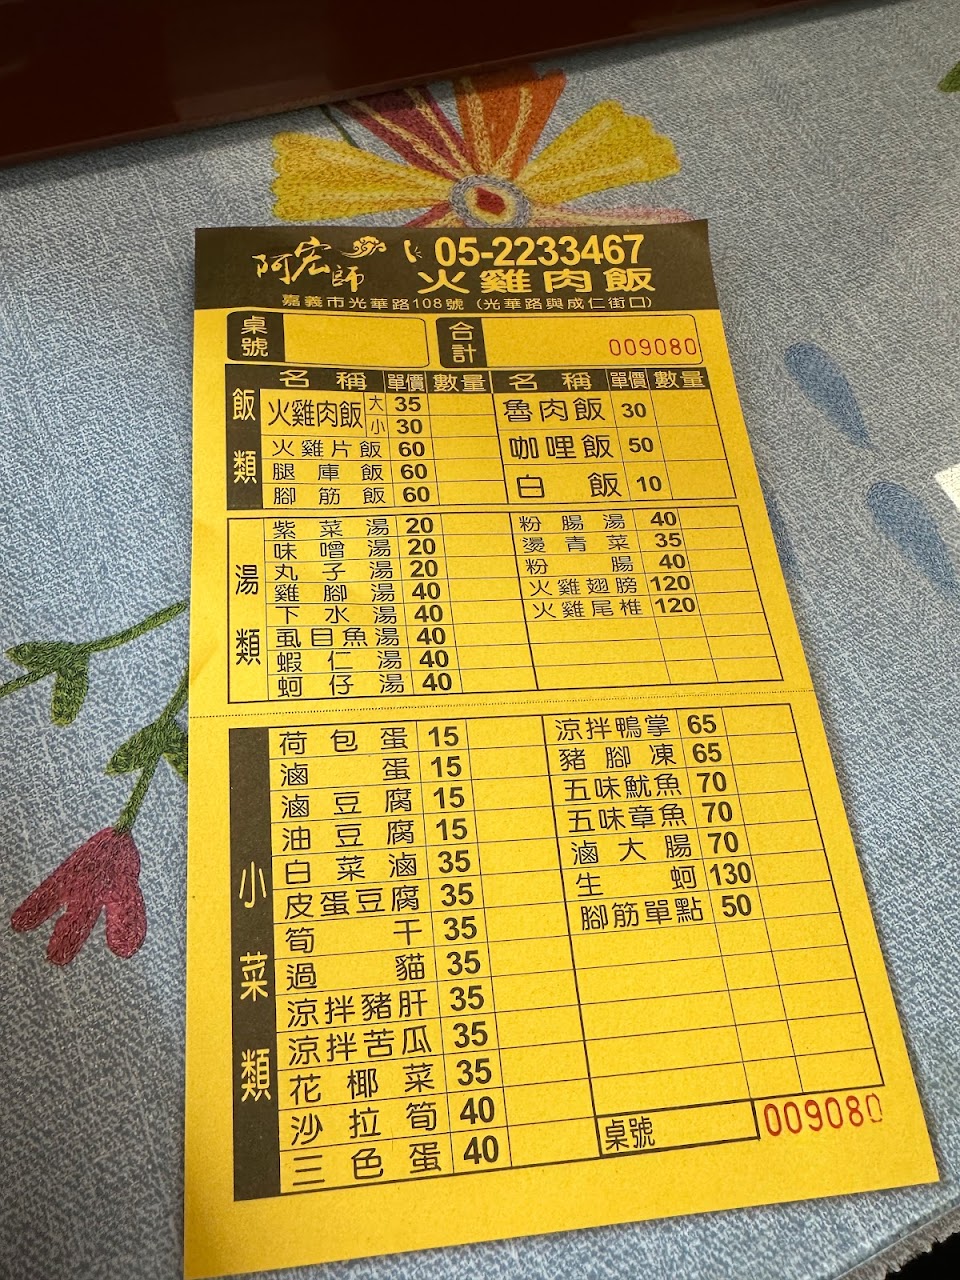 阿宏師
05-2233467
火雞肉飯
嘉義市光華路108號 (光華路與成仁街口)
桌號
合計
009080
名稱 單價 數量 名稱 單價 數量
飯類
火雞肉飯 大 35
小 30
火雞片飯 60
腿庫飯 60
腳筋飯 60
魯肉飯 30
咖哩飯 50
白飯 10
湯類
紫菜湯 20
味噌湯 20
丸子湯 20
雞腳湯 40
下水湯 40
虱目魚湯 40
蝦仁湯 40
蚵仔湯 40
粉腸湯 40
燙青菜 35
粉腸 40
火雞翅膀 120
火雞尾椎 120
小菜類
荷包蛋 15
滷蛋 15
滷豆腐 15
油豆腐 15
白菜滷 35
皮蛋豆腐 35
筍干 35
過貓 35
涼拌豬肝 35
涼拌苦瓜 35
花椰菜 35
沙拉筍 40
三色蛋 40
涼拌鴨掌 65
豬腳凍 65
五味魷魚 70
五味章魚 70
滷大腸 70
生蚵 130
腳筋單點 50
桌號
009080